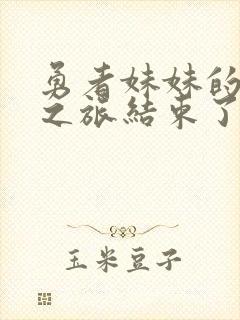 勇者妹妹的
之旅結束了
玉米豆子